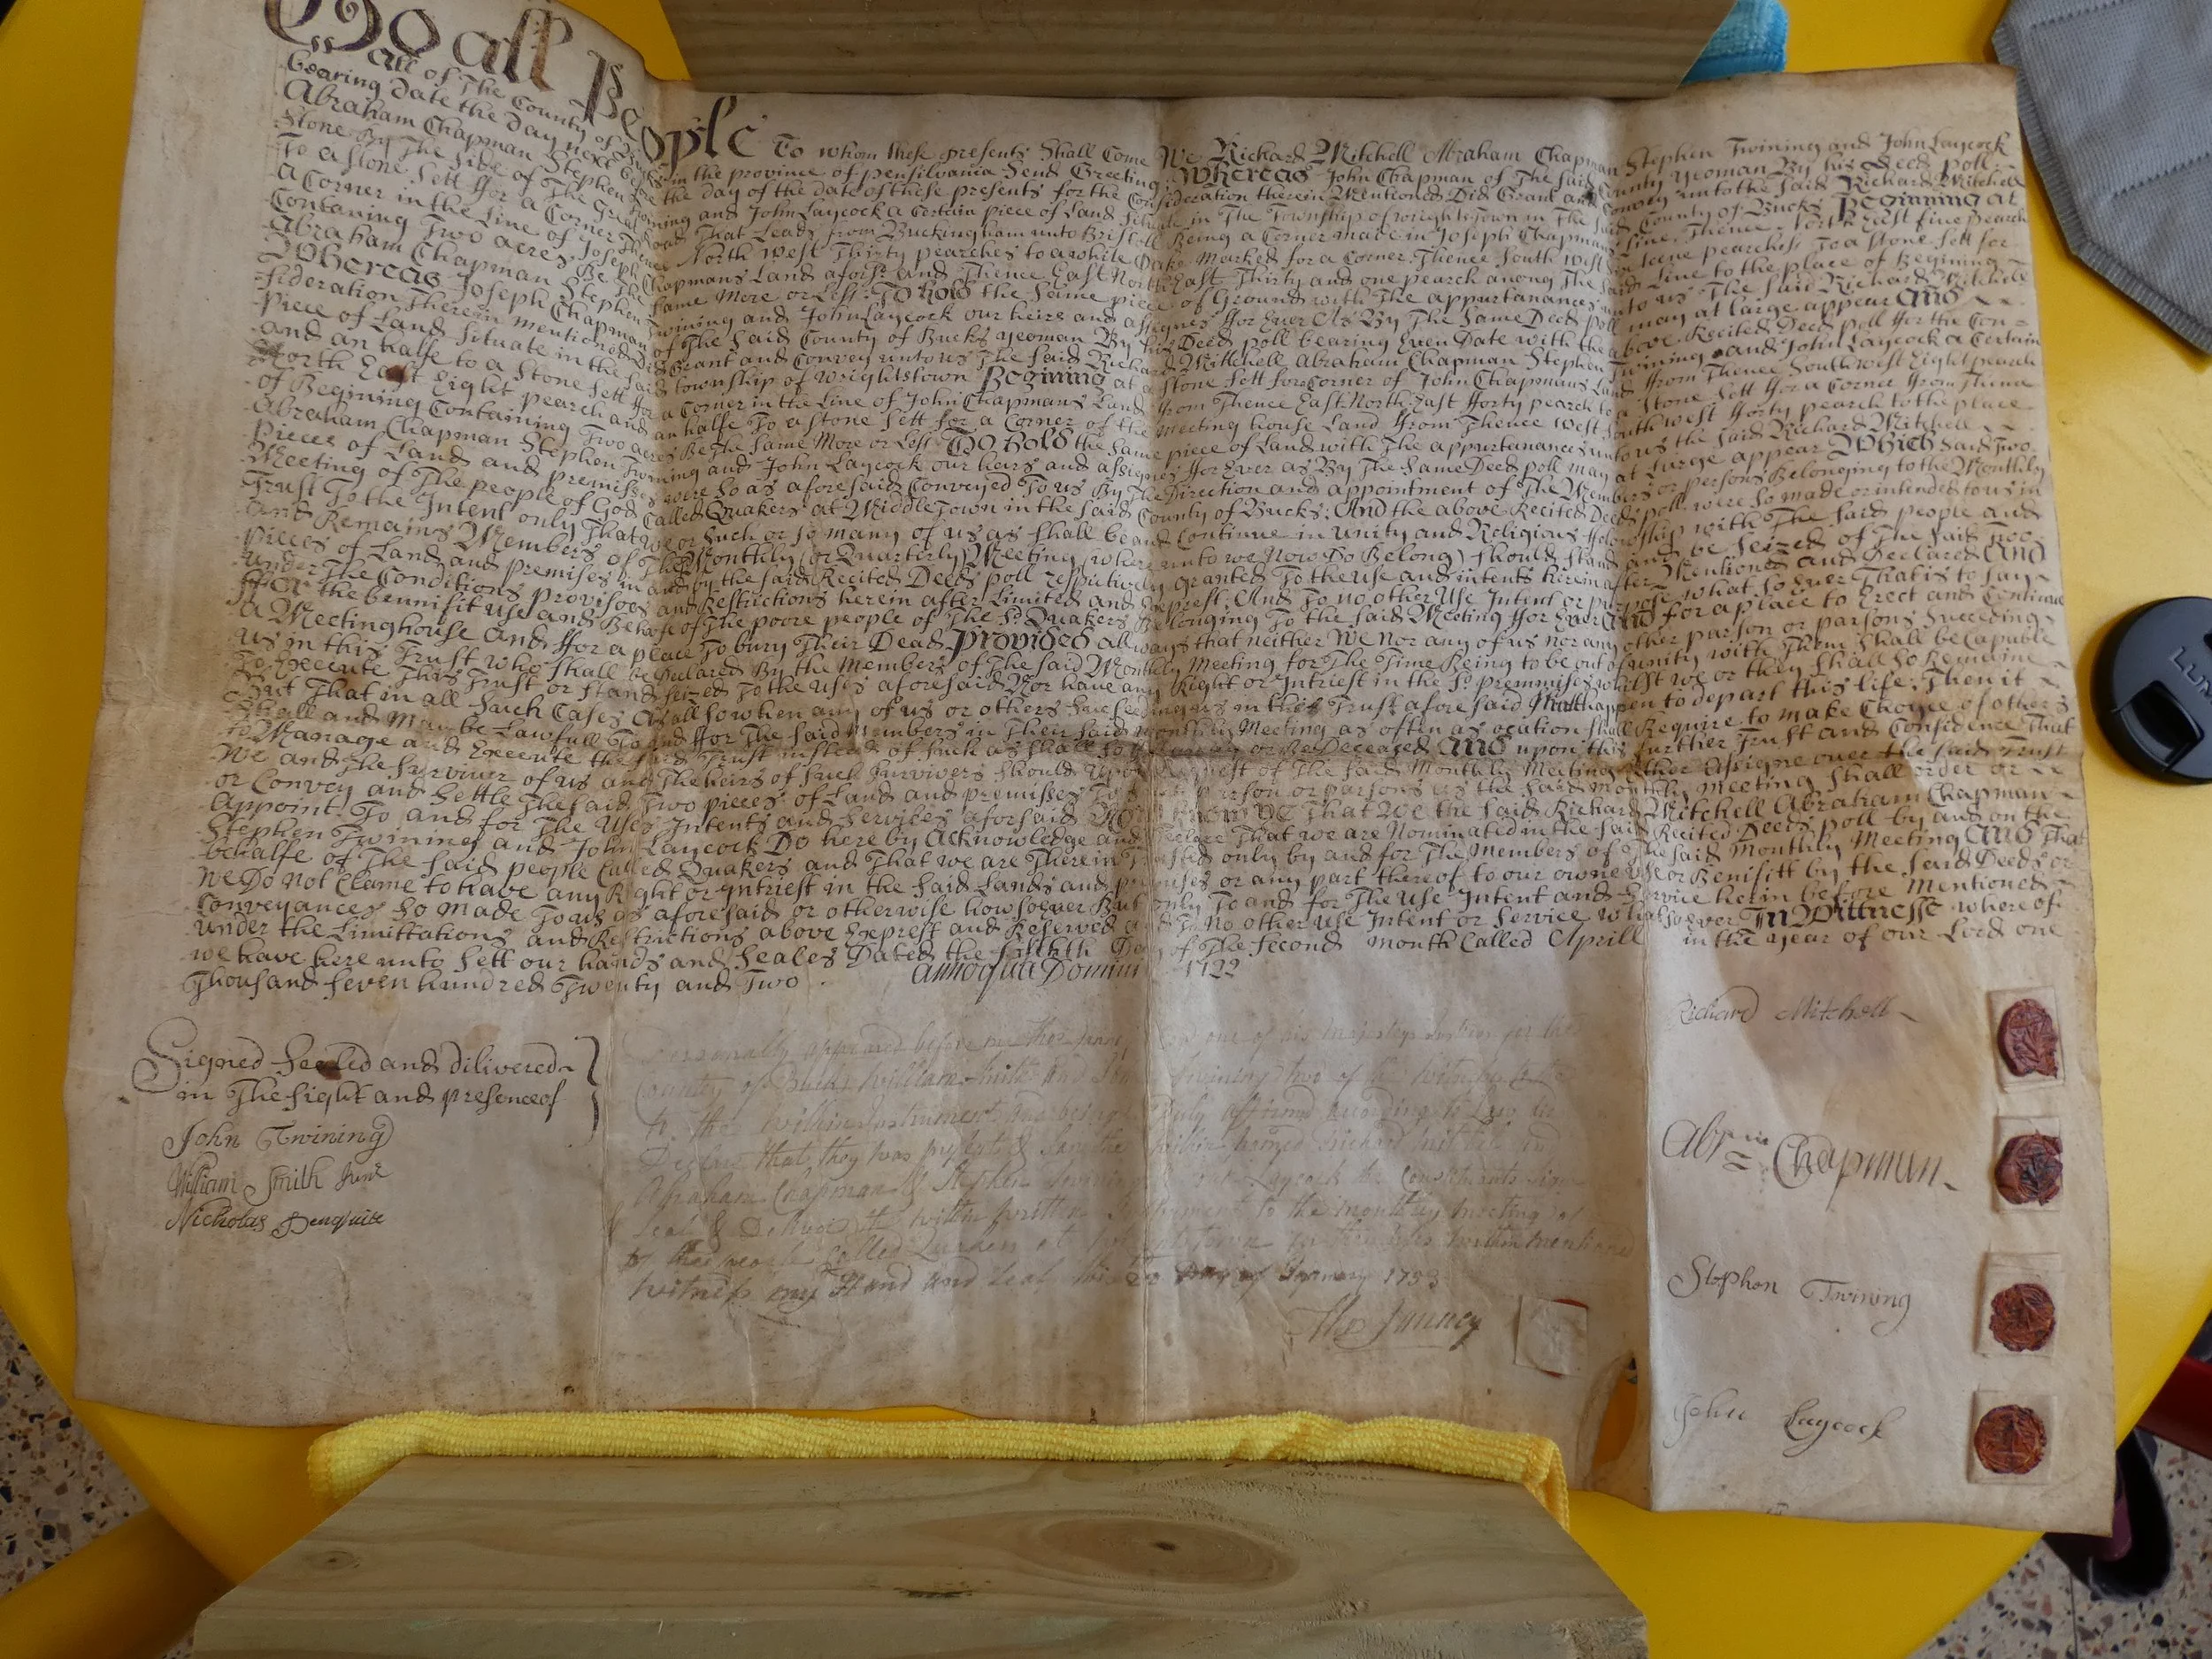 To all People To whom these presents Shall Come We Richard Mitchell Abraham Chapman Stephen Twining and John Laycock
all of The County of Bucks in the province of pensilvania Send Greeting Whereas John Chapman of The Said County yeoman By his Deed poll
bearing Date the Day next before the day of the date of these presents for the Consideration therein Mentioned Did Grant and Convey unto the Said Richard Mitchell
Abraham Chapman Stephen Twining and John Laycock a Certain piece of Land Situate in The Township of Wrightstown in The Said County of Bucks Begining at
Stone By The Side of The Great Road That Leads from Buckingham unto Bristoll Being a Corner made in Joseph Chapmans Line Thence North East five pearch
To a Stone Sett ffor a Corner Thence North West Thirty pearches to a white Oake Marked for a Corner Thence South West pearches To a Stone Sett for
a Corner in the Line of Joseph Chapmans Land afors.d and Thence East North East Thirty and one pearch among The Said Line to the place of Begining
Containing Two acres Be The Same More or Less To hold the Same piece of Ground with The appurtanances unto us The Said Richard Mitchell
Abraham Chapman Stephen Twining and John Laycock our heirs and assignes ffor Ever As By The Same Deed poll may at large appear And
Whereas Joseph Chapman of The Said County of Bucks yeoman By his Deed poll bearing Even Date with the above Recited Deed poll ffor the Con=
sideration Therein mentioned Did Grant and Convey unto us The Said Richard Mitchell Abraham Chapman Stephen Twining and John Laycock a Certain
Piece of Land Situate in the Said township of Wrightstown Begining at a Stone Sett for Corner of John Chapmans Land ffrom Thence Southwest Eight pearch
and an halfe to a Stone Sett ffor a Corner in the Line of John Chapmans Land ffrom Thence East North East fforty pearch to a Stone Sett ffor a Corner ffrom Thence
North East Eight pearch and an halfe To a Stone Sett for a Corner of the Meeting house Land ffrom Thence West Southwest fforty pearch to the place
of Begining Containing Two acres Be The Same More or Less To hold the Same piece of Land with The appurtanances unto us the Said Richard Mitchell
Abraham Chapman Stephen Twining and John Laycock our heirs and assignes ffor Ever as By The Same Deed poll may at Large appear Which Said Two
Pieces of Land and premisses were So as aforesaid Conveyed To us By The Direction and appointment of The Members or persons Belonging to the Monthly
Meeting of The people of God Called Quakers at Middletown in the Said County of Bucks: And the above Recited Deeds poll were So made or intended to us in
Trust To the Intent only That we or Such or So many of us as Shall be and Continue in unity and Religious ffelowship with The Said people and
and Remains Members of The Monthly (or Quarterly) Meeting (where unto we Now Do Belong) Should Stand and be Seized of The Said Two
pieces of Land and premisses in and by the Said Recited Deeds poll respectively granted To the use and intents herein after Mentioned and Declared And
under The Conditions provisoes and Restrictions herein after Limited and Exprest: And To no other Use Intent or purpose what So Ever That is to Say
ffor the bennifit use and Behoofe of The poore people of The S.d Quakers Belonging To the Said Meeting ffor Ever And for a place to Erect and Continue
a Meetinghouse and ffor a place To bury Their Dead Provided allways that neither We Nor any of us nor any other parson or parsons Suceeding
us in this Trust who Shall be Declared By the Members of The Said Monthly Meeting for The Time Being to be out of unity with Them Shall be Capable
To Execute This Trust or Stand Seized To the uses aforesaid Nor have any Right or Intrest in the S.d premmises whilst we or they Shall So Remaine
But That in all Such Cases As allso when any of us or others Suceeding us in this Trust aforesaid Shall happen to depart this life: Then it
Shall and May be Lawfull To and ffor The Said Members in Their Said monthly Meeting as often as ocation Shall Require to make Choyce of others
To Manage and Execute the Said Trust instead of Such as Shall So or Be Deceased And upon this further Trust and Confidence That
We and The Surviver of us and The heirs of Such Survivers Should Upon Request of The Said Monthly Meeting Either Assigne over the Said Trust
or Convey and Settle The Said Two pieces of Land and premisses To Such person or parsons as the Said monthly Meeting Shall order or
Appoint To and for The Uses Intents and Services aforsaid Now Know ye That We the Said Richard Mitchell Abraham Chapman
Stephen Twining and John Laycock Do here by Acknowledge and Declare That we are Nominated in the Said Recited Deeds poll by and on the
behalfe of The Said people Called Quakers and That we are Therein Trusted only by and for The Members of The Said Monthly Meeting And That
We Do not Clame to have any Right or Intrest in the Said Lands and premises or any part thereof to our owne Use or Benifitt by the Said Deeds or
Conveyances So made To us as aforesaid or otherwise how soever But only To and for The Use Intent and Service herin before Mentioned
under the Limittations and Restrictions above Exprest and Reserved and To No other Use Intent or Service whatsoever In Wittnesse where of
we have here unto Sett our hands and Seales Dated the fifthth Day of The Second month Called Aprill in the year of our Lord one
Thousand Seven hundred Twenty and Two Annoque Domini 1722
Signed Sealed and dilivered
in The Sight and presence of
John Twining
William Smith Junr
Nicholas
Personally appeared before me one of his majestys Justices for the
County of Bucks William Smith and John Twining two of the witnesses
to the within Instrument and being Duly affirmd according to Law did
Declare that they was present & Saw the within named Richard Mitchell and
Abraham Chapman & Stephen Twining John Laycock
Seal & Deliver the within written Instrument to the monthly meeting of
the people Called Quakers at within mentioned
witness my Hand and Seal this Day of January 1753
Janney
Richard Mitchell
Abra.m Chapman
Stephen Twining
John Laycock
LUM